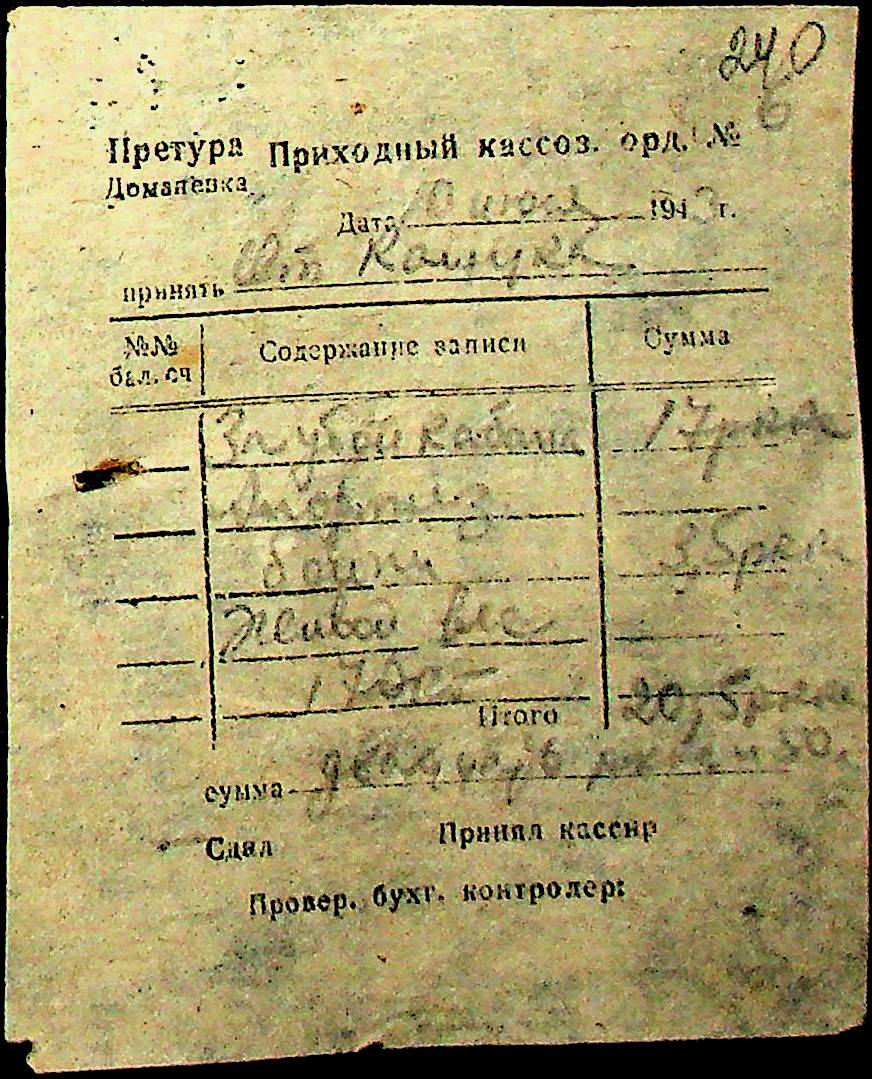 240
6
Претура Приходный кассоз. орд. №
Доманевка
Дата 10 июня 1943 г.
принять От
№№ бал. сч Содержание записи Сумма
За убой кабана 17 ркм
3,5 ркм
Живой вес
Итого 20,5 ркм
сумма двадцать и 50
Сдал Принял кассир
Провер. бухг. контролер: